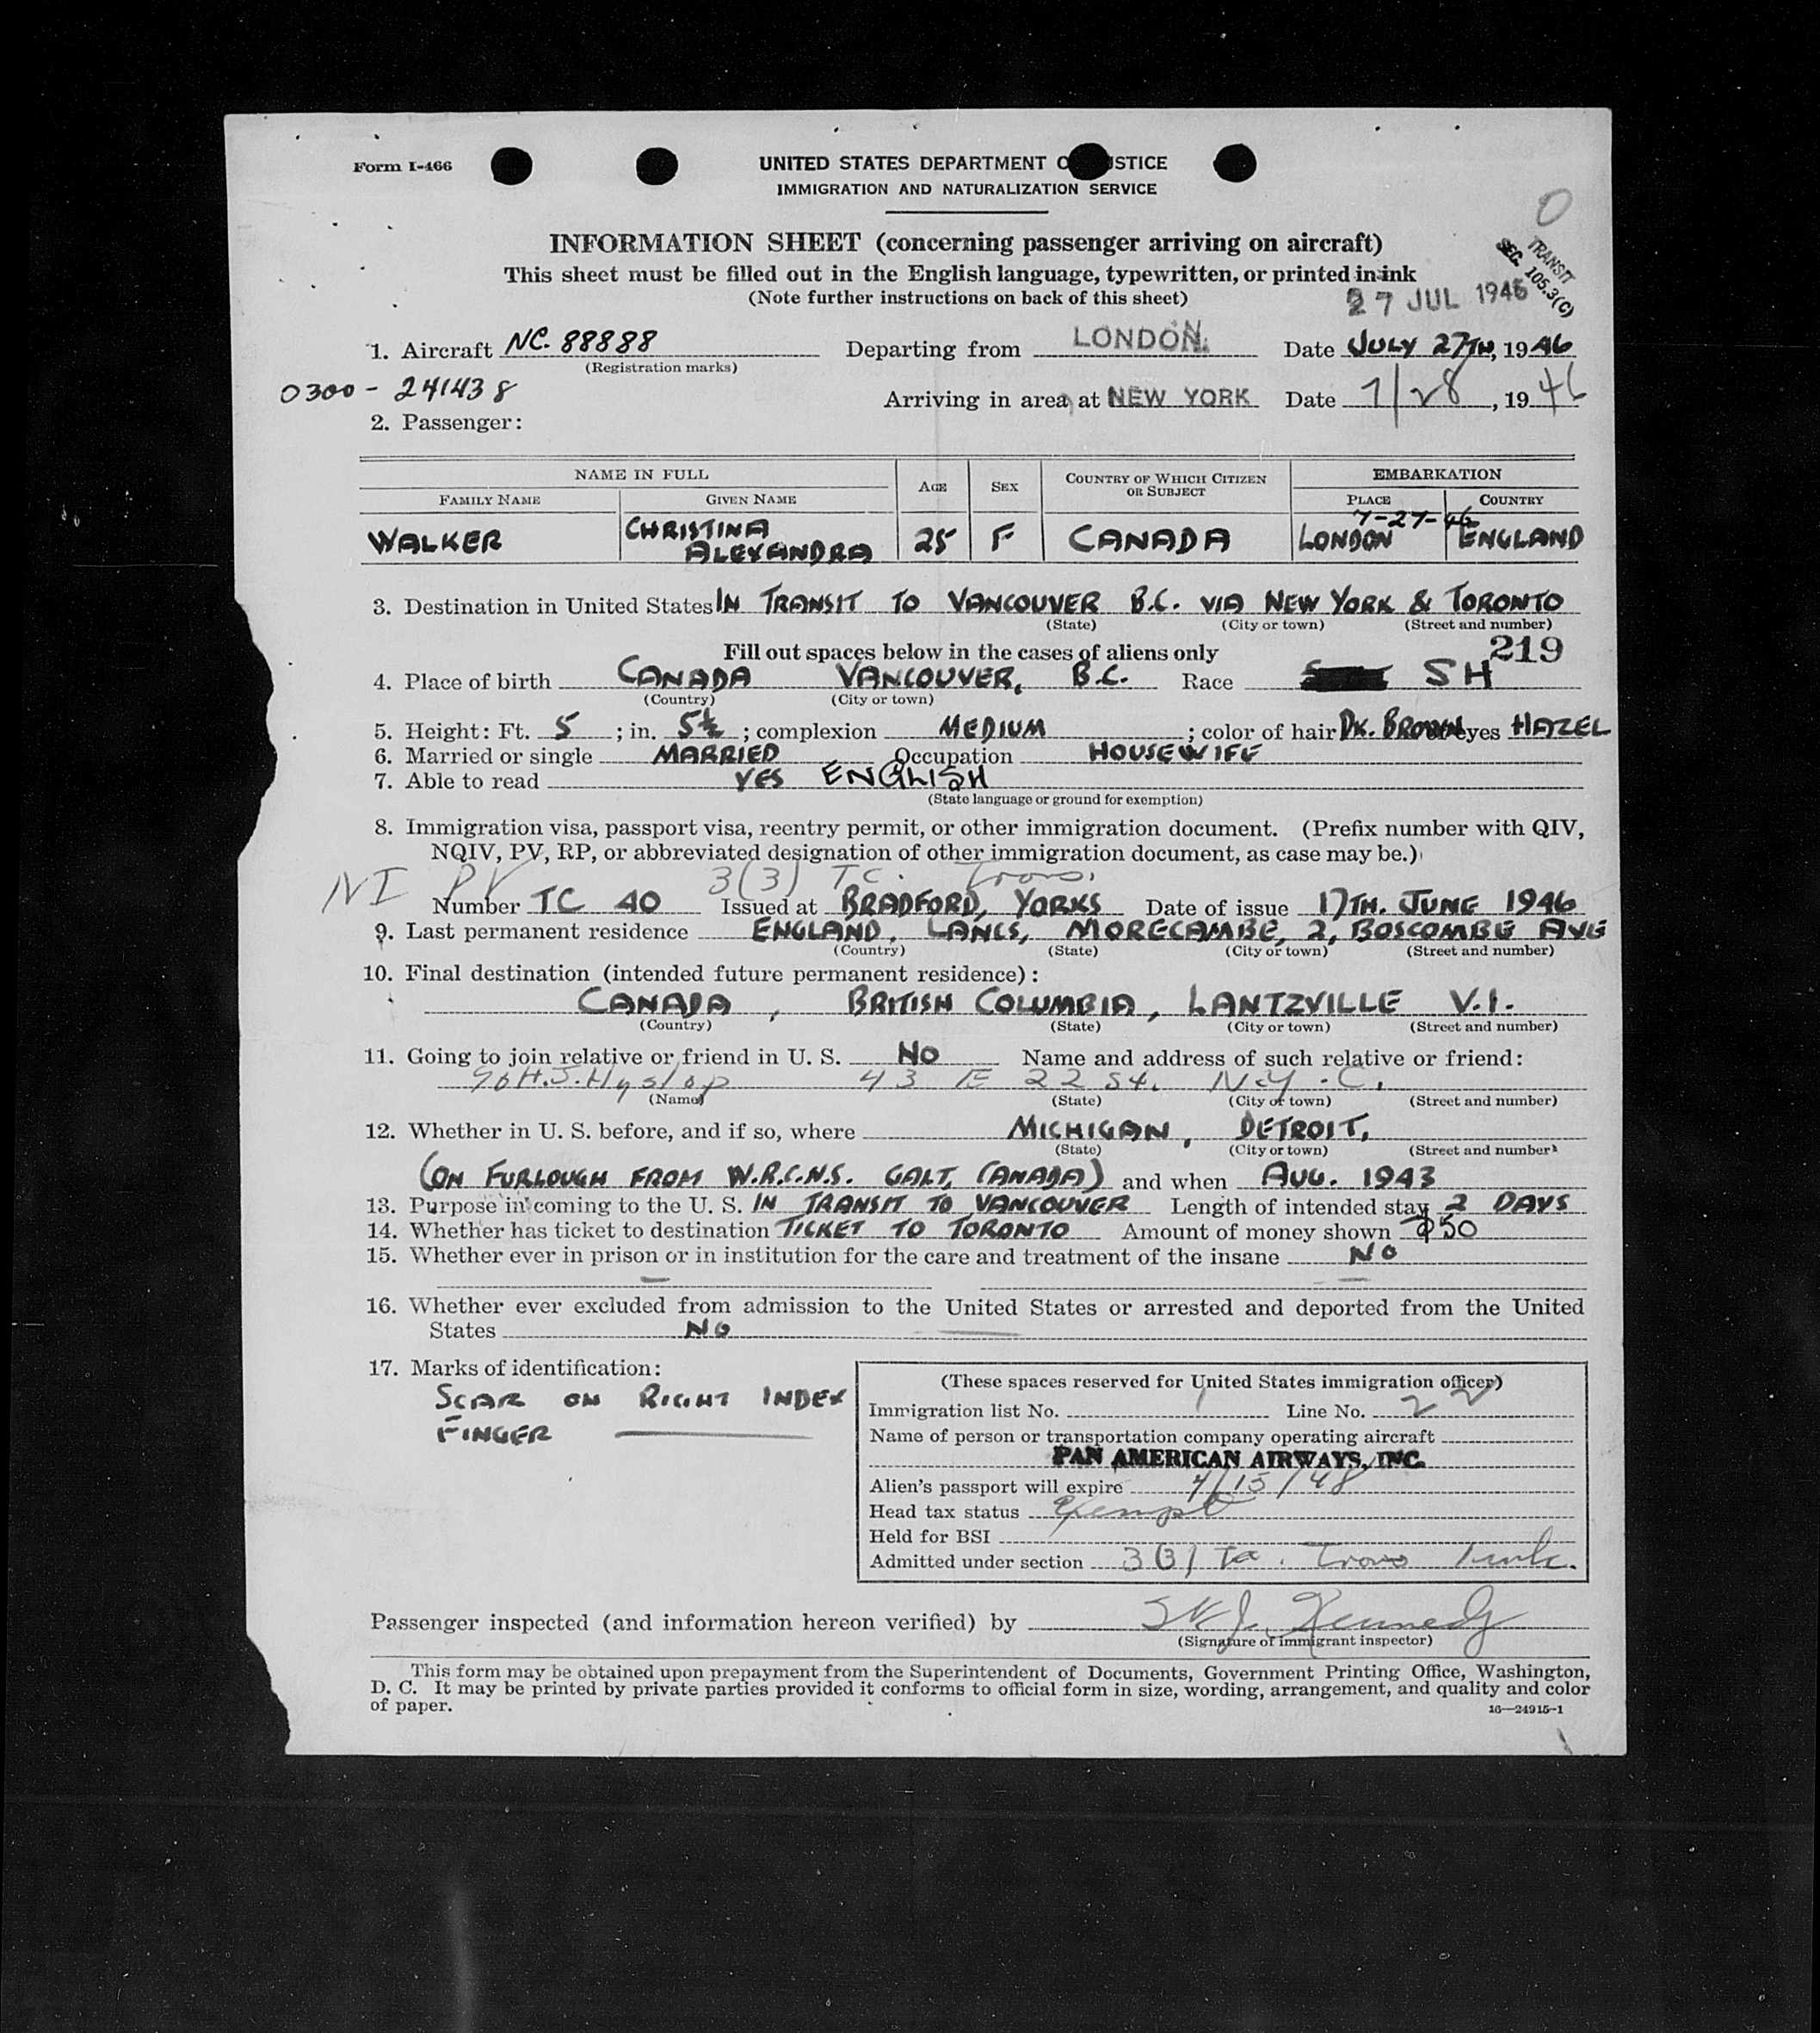 Form I-466
UNITED STATES DEPARTMENT O STICE
IMMIGRATION AND NATURALIZATION SERVICE
0
INFORMATION SHEET (concerning passenger arriving on aircraft)
TRANSIT
SEC. 105.3(C)
This sheet must be filled out in the English language, typewritten, or printed in ink
(Note further instructions on back of this sheet)
27 JUL 1946
1. Aircraft NC. 88888 Departing from LONDON. Date JULY 27TH, 1946
(Registration marks)
0300 - 241438
Arriving in area at NEW YORK Date 7/28, 1946
2. Passenger:
NAME IN FULL AGE SEX COUNTRY OF WHICH CITIZEN OR SUBJECT EMBARKATION
FAMILY NAME GIVEN NAME PLACE COUNTRY
7-27-46
WALKER CHRISTINA ALEXANDRA 25 F CANADA LONDON ENGLAND
3. Destination in United States IN TRANSIT TO VANCOUVER B.C. VIA NEW YORK & TORONTO
(State) (City or town) (Street and number)
Fill out spaces below in the cases of aliens only 219
4. Place of birth CANADA VANCOUVER, B.C. Race SH
(Country) (City or town)
5. Height: Ft. 5 ; in. 5½ ; complexion MEDIUM ; color of hair DK. BROWN eyes HAZEL
6. Married or single MARRIED Occupation HOUSEWIFE
7. Able to read YES ENGLISH
(State language or ground for exemption)
8. Immigration visa, passport visa, reentry permit, or other immigration document. (Prefix number with QIV,
NQIV, PV, RP, or abbreviated designation of other immigration document, as case may be.)
NI PV 3(3) TC. Trans.
Number TC 40 Issued at BRADFORD, YORKS Date of issue 17TH. JUNE 1946
9. Last permanent residence ENGLAND, LANCS, MORECAMBE, 2, BOSCOMBE AVE
(Country) (State) (City or town) (Street and number)
10. Final destination (intended future permanent residence):
CANADA, BRITISH COLUMBIA, LANTZVILLE V.I.
(Country) (State) (City or town) (Street and number)
11. Going to join relative or friend in U. S. NO Name and address of such relative or friend:
H.J. Hyslop 43 E 22 St. N.Y.C.
(Name) (State) (City or town) (Street and number)
12. Whether in U. S. before, and if so, where MICHIGAN, DETROIT,
(State) (City or town) (Street and number)
(ON FURLOUGH FROM W.R.C.N.S. GALT, CANADA) and when AUG. 1943
13. Purpose in coming to the U. S. IN TRANSIT TO VANCOUVER Length of intended stay 2 DAYS
14. Whether has ticket to destination TICKET TO TORONTO Amount of money shown $50
15. Whether ever in prison or in institution for the care and treatment of the insane NO
16. Whether ever excluded from admission to the United States or arrested and deported from the United
States NO
17. Marks of identification:
SCAR ON RIGHT INDEX
FINGER
(These spaces reserved for United States immigration officer)
Immigration list No. 1 Line No. 22
Name of person or transportation company operating aircraft
PAN AMERICAN AIRWAYS, INC.
Alien's passport will expire 4/15/48
Head tax status Exempt
Held for BSI
Admitted under section 3(3) Trans
Passenger inspected (and information hereon verified) by Kennedy
(Signature of immigrant inspector)
This form may be obtained upon prepayment from the Superintendent of Documents, Government Printing Office, Washington,
D. C. It may be printed by private parties provided it conforms to official form in size, wording, arrangement, and quality and color
of paper.
16—24915-1